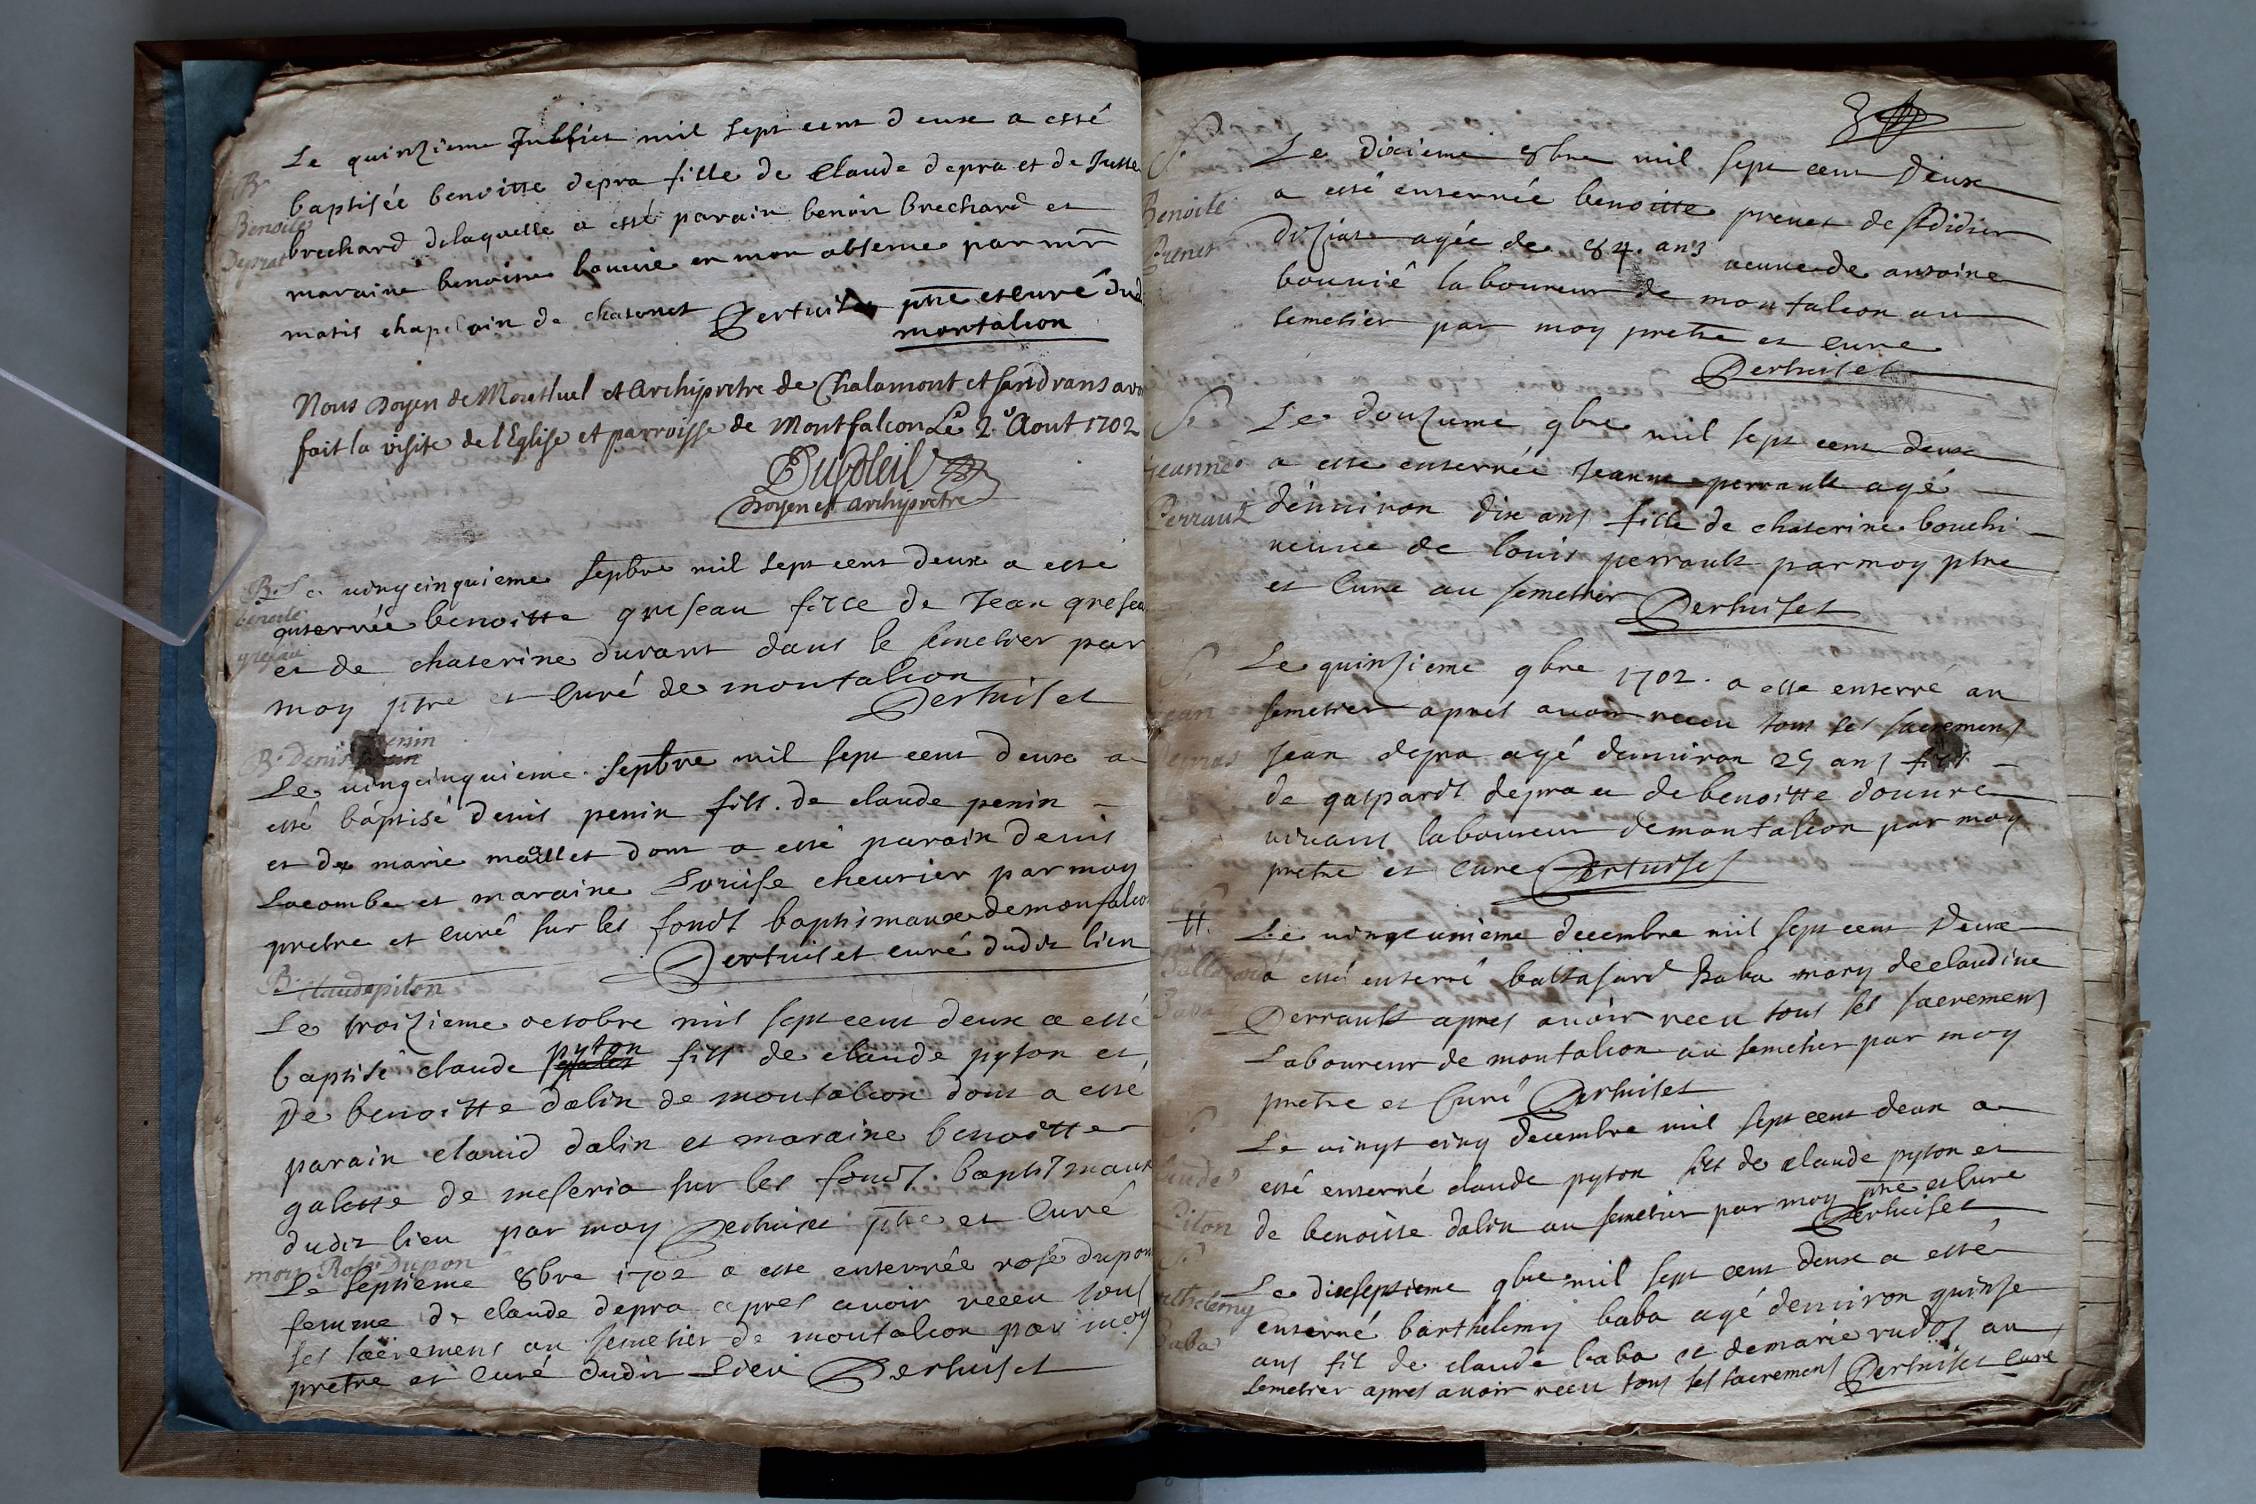 Le quinzieme Juillet mil sept cent deux a esté
B
Benoite
Deprat
baptisée benoitte depra fille de Claude depra et de Juste
brechard delaquelle a esté parain benoir brechard et
maraine benoitte bouvie en mon absense par mr
matis chapelain de chatenet Pertuiset ptre et curé dud
montalion
Nous Doyen de Montluel et Archipretre de Chalamont et Sandrans avo
fait la visite de l'Eglise et parroisse de Montfalcon Le 2e Aout 1702
DuSoleil
Doyen et archipretre
B. Le vingcinquieme sepbre mil sept cent deux a esté
benoite
grefau
enterrée benoitte greseau fille de Jean gresea
et de chaterine durant dans le semetier par
moy ptre et Curé de montalion
Pertuiset
B. Denis penin
Le vingcinquieme sepbre mil sept cent deux a
esté baptisé denis penin fill. de claude penin
et de marie maillet dont a esté parain denis
Lacombe et maraine Louise cheurier par moy
pretre et curé sur les fondt baptimaux de monfalco
Pertuiset curé dudit lieu
B. Claude piton
Le troizieme octobre mil sept cent deux a esté
baptisé claude pyton fill de claude pyton et
De benoitte dalin de montalion dont a esté
parain claud dalin et maraine benoitte
galette de meseria sur les fondt baptismaux
dudit lieu par moy Pertuiset ptre et Curé
mort Rose Dupon
Le septieme 8bre 1702 a esté enterrée rose dupon
femme de claude depra apres avoir receu tous
ses sacremens au semetier de montalion par moy
pretre et curé dudit Lieu Pertuiset
8
S.
Benoite
Prenet
Le dixieme 8bre mil sept cent deux
a esté enterrée benoitte prenet de st didier
agée de 84 ans veuve de antoine
bouvié laboureur de montalcon au
semetier par moy pretre et Cure
Pertuiset
S.
jeanne
Perraut
Le douzieme 9bre mil sept cent deux
a esté enterrée Jeanne perrault agé
denuiron dix ans fille de chaterine bouchi
veuve de louis perrault par moy ptre
et Cure au semettier Pertuiset
S.
jean
depras
Le quinzieme 9bre 1702. a esté enterré au
semetier apres avoir receu tous ses sacremens
Jean depra agé denuiron 25 ans fill
de gaspardt depra et de benoitte douure
vivant laboureur de montalion par moy
pretre et Cure Pertuiset
Baltazard
Baba
Le vingt unieme decembre mil sept cent Deux
a esté enterré baltasard Baba mary de claudine
Perrault apres auoir receu tous ses sacremens
Laboureur de montalion au semetier par moy
pretre et Curé Pertuiset
S.
Claude
Piton
Le vingt cinq decembre mil sept cent deux a
esté enterré claude pyton fill de claude pyton et
de benoitte dalin au semetier par moy ptre et Cure
Pertuiset
S.
Barthelemy
Baba
Le dixseptieme 9bre mil sept cent deux a esté
enterré barthelemy baba agé denuiron quinse
ans fil de claude baba et de marie rudos au
semetier apres avoir receu tous ses sacremens Pertuiset Cure